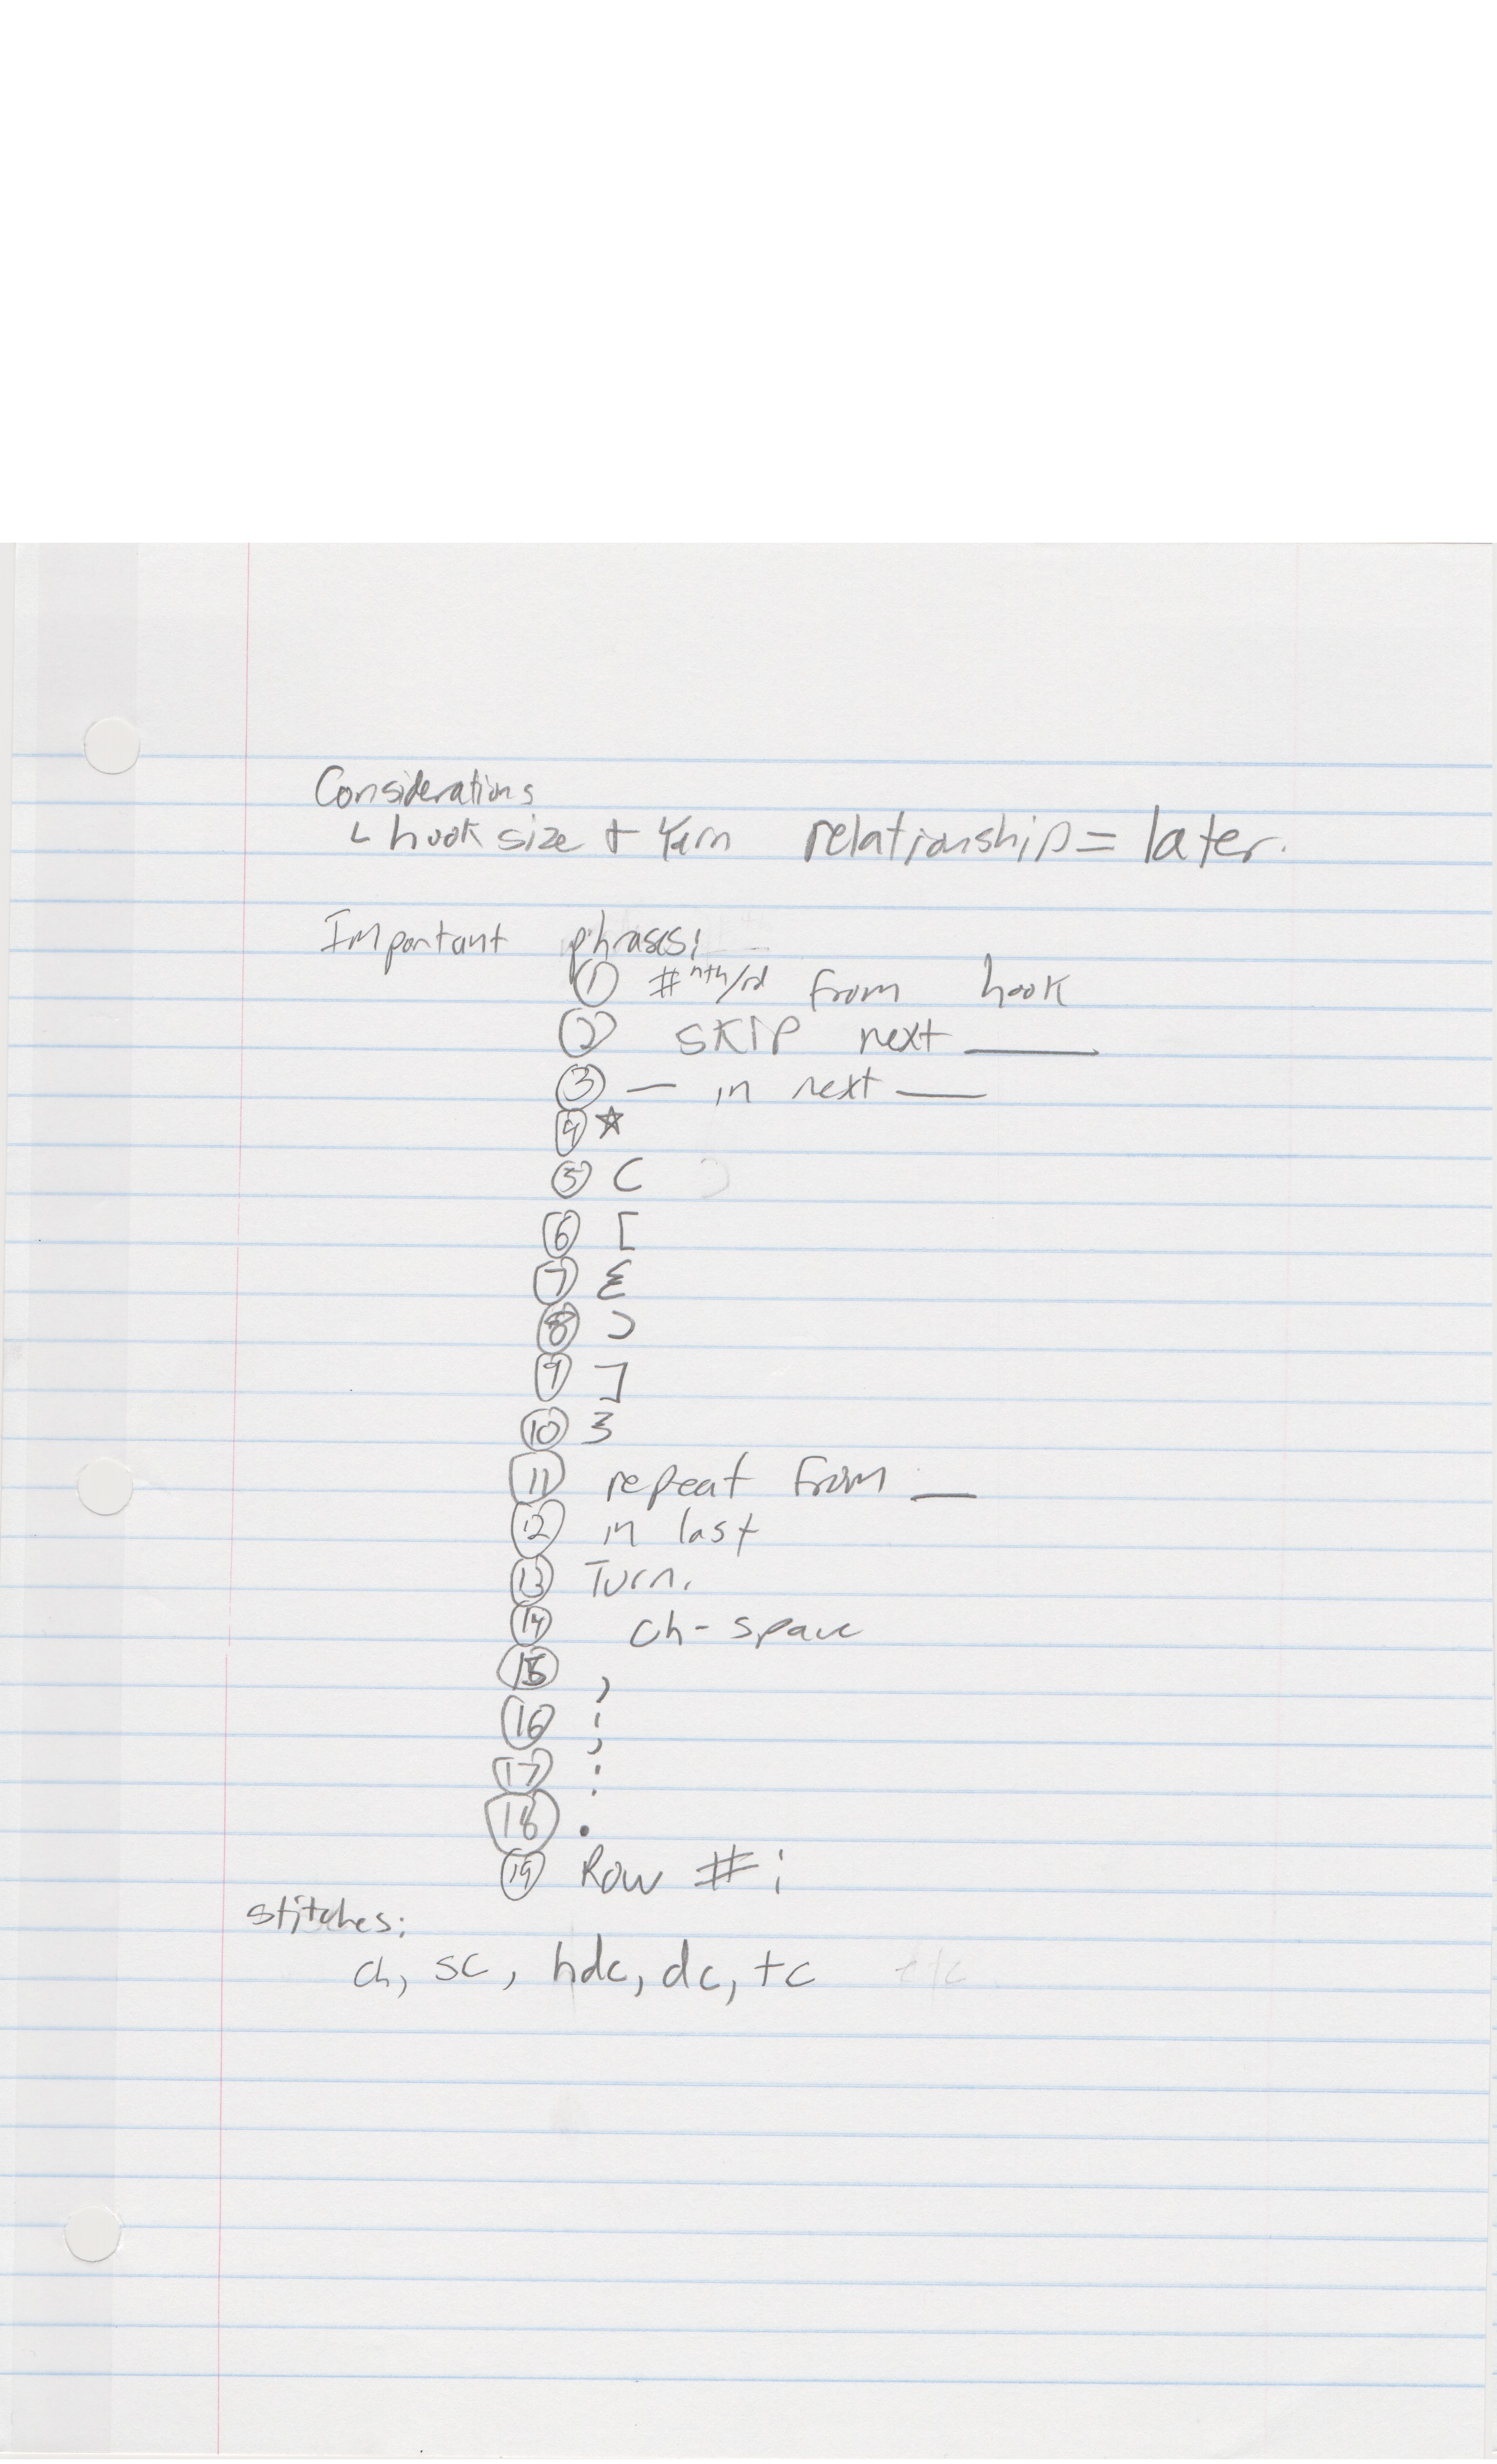 Considerations
↳ hook size + Yarn relationship = later.
Important phrases:
① #nth/rd from hook
② SKIP next ____
③ — in next ____
④ ☆
⑤ (
⑥ [
⑦ {
⑧ )
⑨ ]
⑩ }
⑪ repeat from __
⑫ in last
⑬ Turn.
⑭ ch-space
⑮ ,
⑯ ;
⑰ :
⑱ .
⑲ Row #:
stitches:
ch, sc, hdc, dc, tc etc